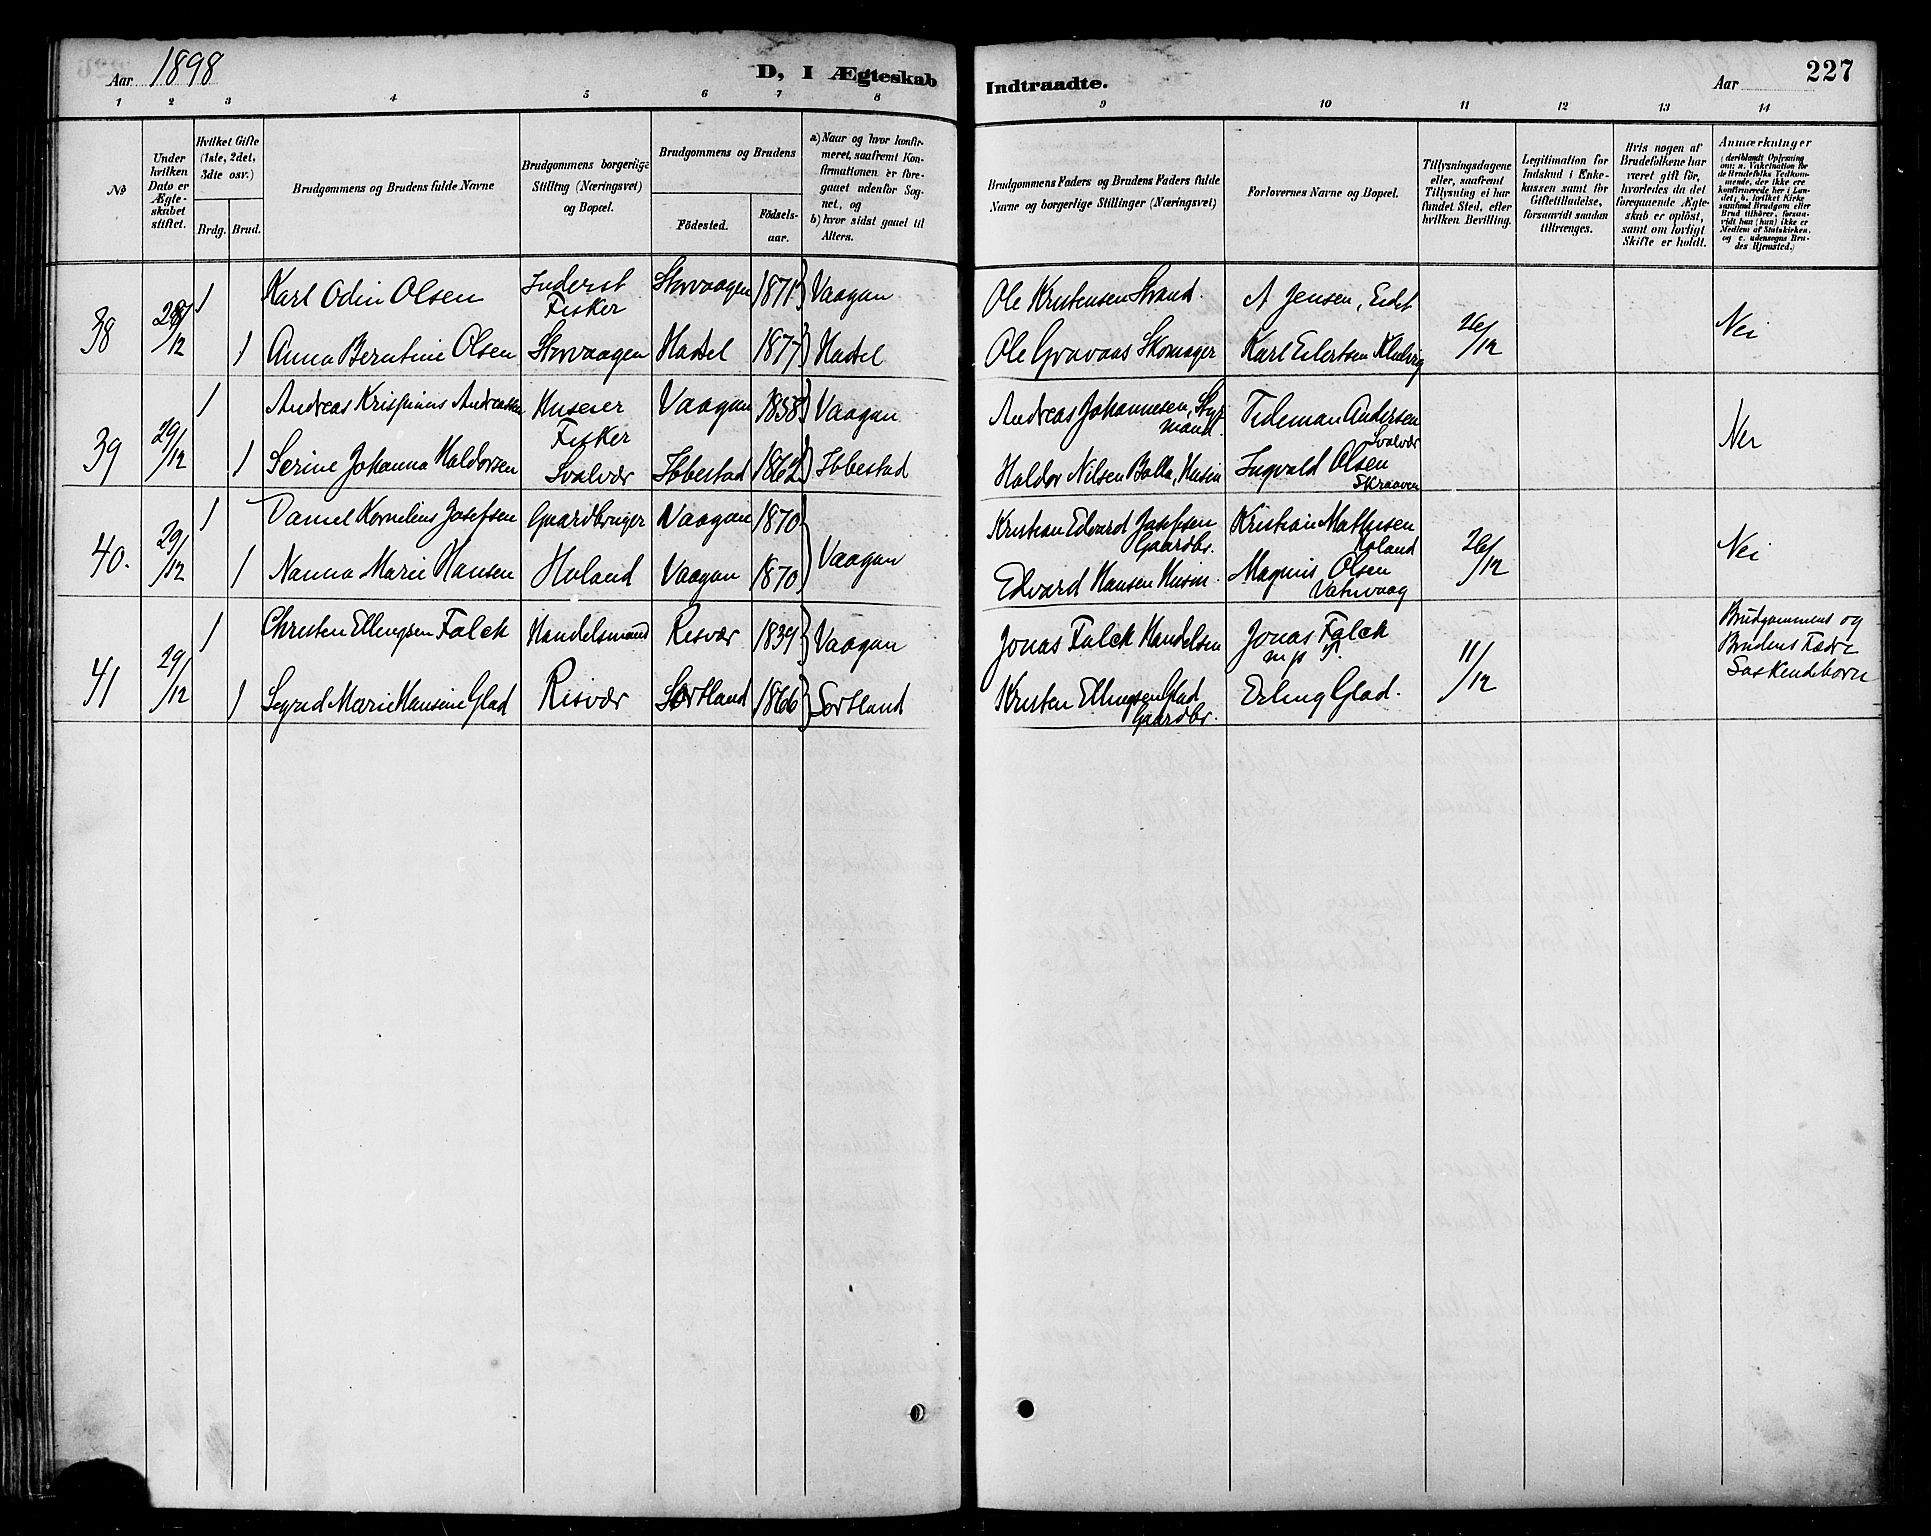 Aar 1898
D, I Ægteskab
Indtraadte.
Aar
227
1 2 3 4 5 6 7 8 9 10 11 12 13 14
No
Under hvilken Dato er Ægteskabet stiftet.
Hvilket Gifte (1ste, 2det, 3die osv.)
Brdg. Brud.
Brudgommens og Brudens fulde Navne
Brudgommens borgerlige Stilling (Næringsvei) og Bopæl.
Brudgommens og Brudens
Födested.
Födsels-aar.
a) Naar og hvor konfirmeret, saafremt Konfirmationen er foregaaet udenfor Sognet, og
b) hvor sidst gaaet til Alters.
Brudgommens Faders og Brudens Faders fulde Navne og borgerlige Stillinger (Næringsvei)
Forlovernes Navne og Bopæl.
Tillysningsdagene eller, saafremt Tillysning ei har fundet Sted, efter hvilken Bevilling.
Legitimation for Indskud i Enkekassen samt for Giftetilladelse, forsaavidt saadan tiltrænges.
Hvis nogen af Brudefolkene har været gift för, hvorledes da det foregaaende Ægteskab er oplöst, samt om lovligt Skifte er holdt.
Anmærkninger
(deriblandt Oplysning om: a. Vakcination for de Brudefolks Vedkommende, der ikke ere konfirmerede her i Landet; b. hvilket Kirkesamfund Brudgom eller Brud tilhører, forsaavidt han (hun) ikke er Medlem af Statskirken, og c. udensogns Brudes Hjemsted.)
38 28/12 1 Karl Odin Olsen Inderst Fisker Storvaagen 1871 Vaagan Ole Kristensen Strand. A Jensen, Eidet
1 Anna Berntine Olsen Storvaagen Hadsel 1877 Hadsel Ole Gravaas Skomager Karl Eilertsen 26/12 Nei
39 29/12 1 Andreas Krispinus Andreassen Huseier Fisker Vaagan 1858 Vaagan Andreas Johannesen, Styrmand. Tideman Andersen Svolvær
1 Serine Johanna Haldorsen Svolvær Ibbestad 1862 Ibbestad Haldor Nilsen Balla, Husm Ingvald Olsen Skraaven Nei
40. 29/12 1 Daniel Kornelius Josefsen Gaardbruger Vaagan 1870 Vaagan Kristian Edvard Josefsen Gaardbr. Kristian Mathisen Holand
1 Nanna Marie Hansen Holand Vaagan 1870 Edvard Hansen Husm. Magnus Olsen Vatnvaag 26/12 Nei
41 29/12 1 Christen Ellingsen Falck Handelsmand Risvær 1839 Vaagan Jonas Falck Handelsm Jonas Falck
1 Sigrid Marie Hansine Glad Risvær Sortland 1866 Sortland Kristen Ellingsen Glad Gaardbr. Erling Glad. 11/12 Brudgommens og Brudens Fædre Søskendebørn